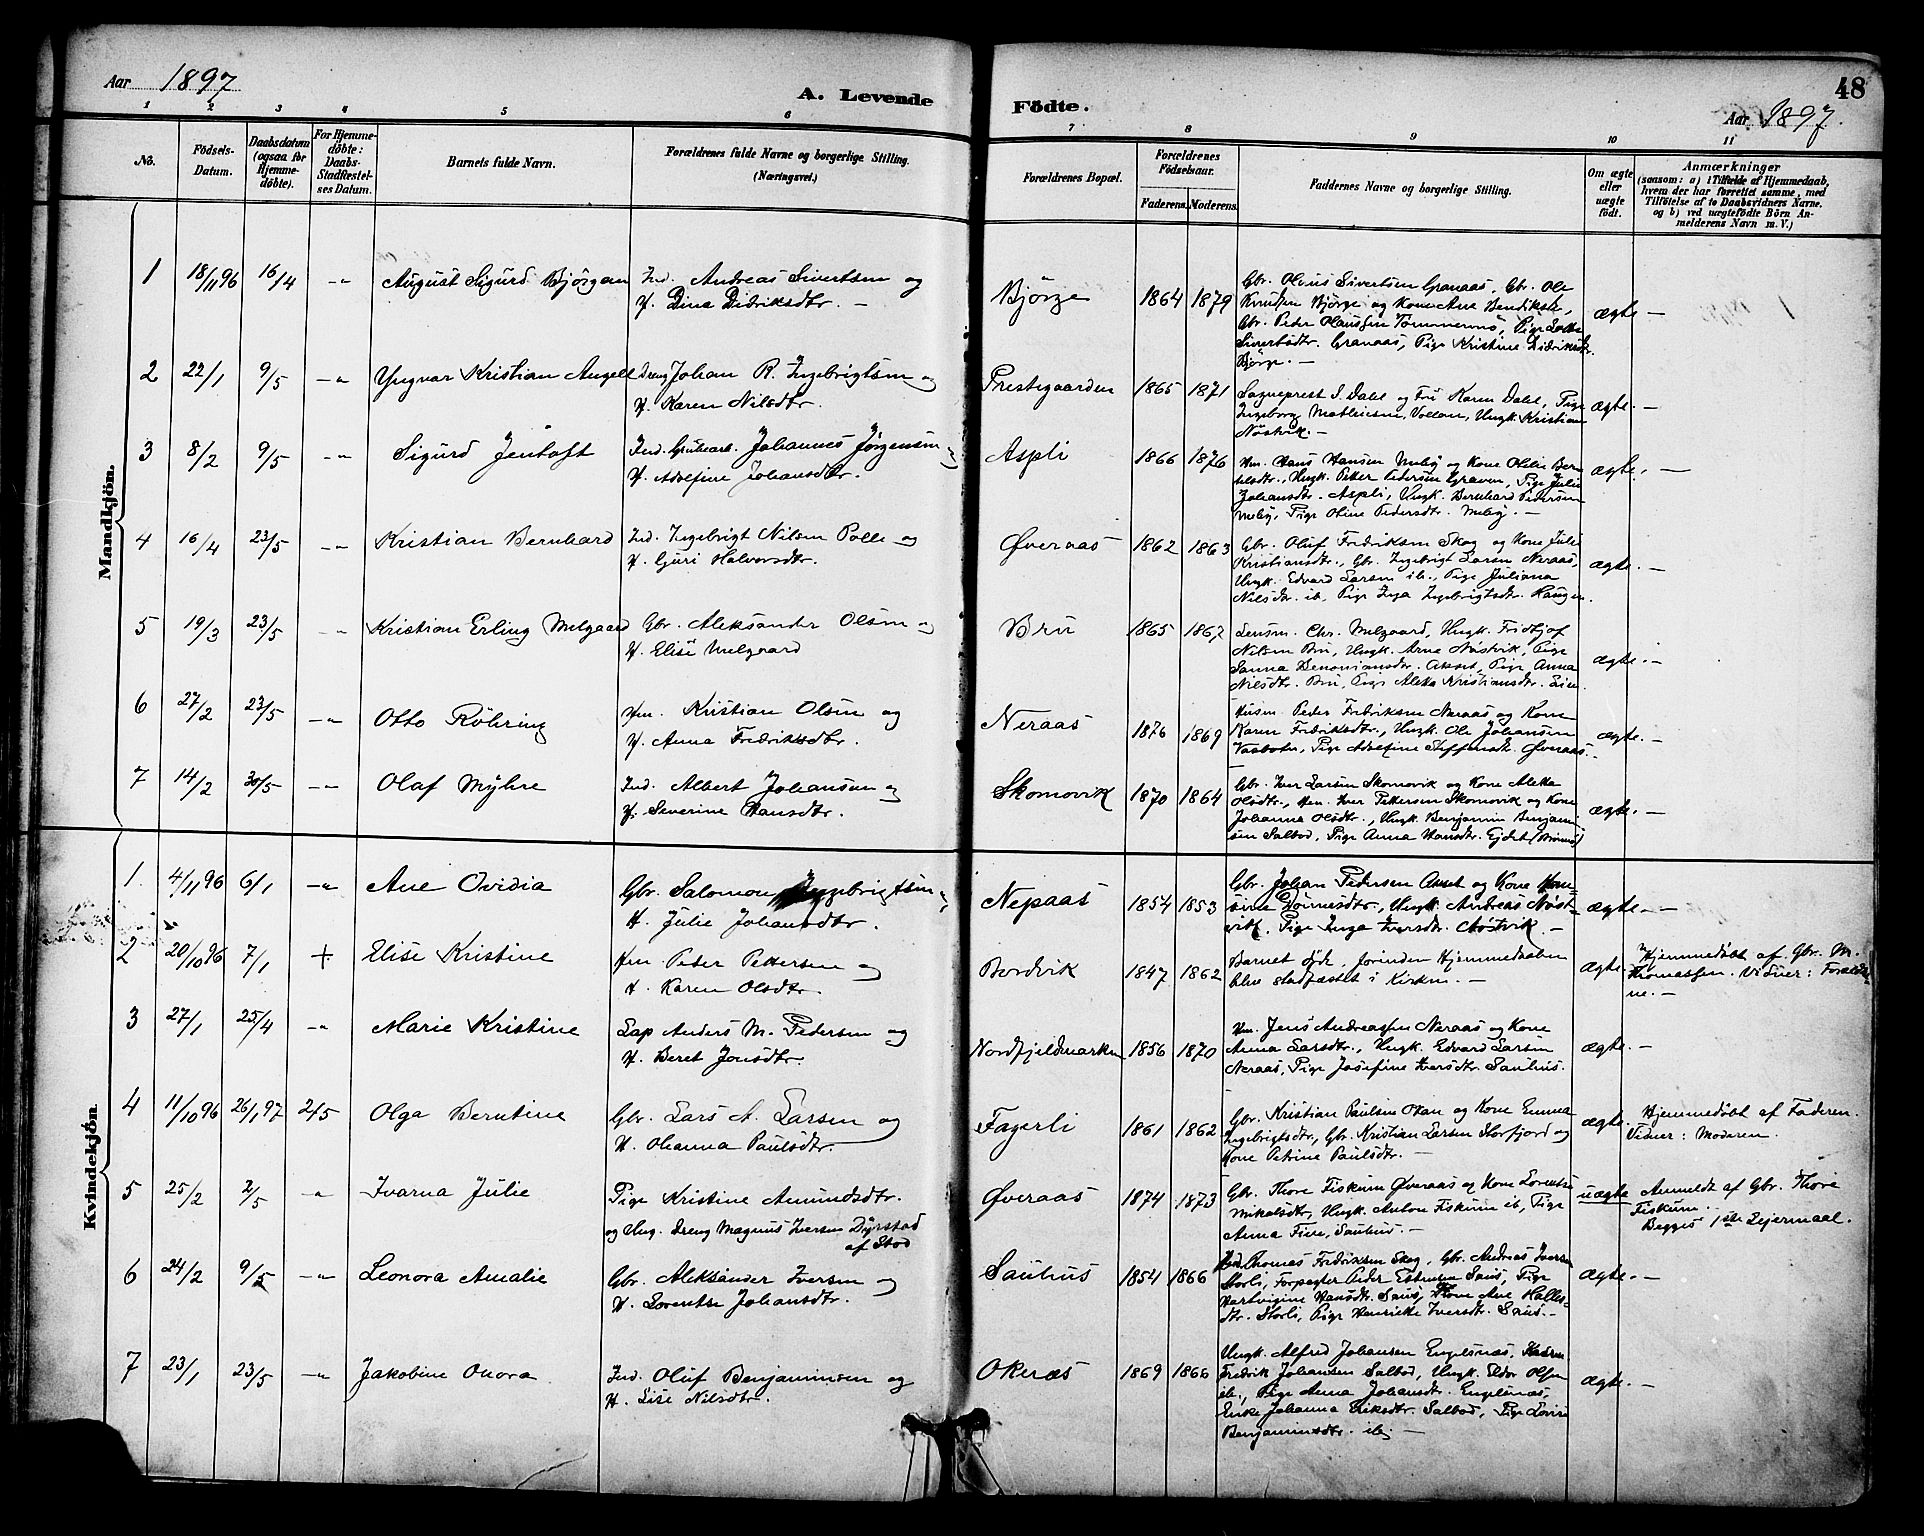 Aar 1897
A. Levende Födte.
Aar 1897.
48
1 2 3 4 5 6 7 8 9 10 11
No.
Födsels-
Datum.
Daabsdatum
(ogsaa for
Hjemme-
döbte).
For Hjemme-
döbte:
Daabs-
Stadfestel-
ses Datum.
Barnets fulde Navn.
Forældrenes fulde Navne og borgerlige Stilling.
(Næringsvei.)
Forældrenes Bopæl.
Forældrenes
Födselsaar.
Faderens. Moderens.
Faddernes Navne og borgerlige Stilling.
Om ægte
eller
uægte
födt.
Anmærkninger
(saasom: a) i Tilfælde af Hjemmedaab,
hvem der har forrettet samme, med
Tilföielse af to Daabsvidners Navne.
og b) ved uægtefödte Börn An-
melderens Navn m. V.)
Mandkjön.
1 18/11 96 16/4 -"- August Sigurd Bjørgan Ind. Andreas Sivertsen og
H. Dina Didriksdtr. —
Bjørge 1864 1879 Gbr. Olaus Sivertsen Granaas, Gbr. Ole
Knudsen Bjørge og Kone Ane Bendiksdtr,
Gbr. Peder Olaussen Tømmermo, Pige
Sivertsdtr. Granaas, Pige Kristine Didriksdtr.
Bjørge. —
ægte —
2 22/1 9/5 -"- Yngvar Kristian Angell Dreng Johan R. Ingebrigtsen og
H. Karen Nilsdtr.
Prestegaarden 1865 1871 Sogneprest I. Dahl og Fru Karen Dahl, Pige
Ingeborg Mathiesen, Vollan, Ungk. Kristian
Nøstvik. —
ægte. —
3 8/2 9/5 -"- Sigurd Jentoft Ind. Grubearb. Johannes Jørgensen og
H. Adolfine Johansdtr.
Aspli 1866 1876 Hm. Hans Hansen Meby og Kone Oldie Ber-
telsdtr., Ungk. Petter Pedersen Graven, Pige Julie
Johansdtr. Aspli, Ungk. Bernhard Pedersen
Meby, Pige Oline Pedersdtr. Meby. —
ægte. —
4 16/4 23/5 -"- Kristian Bernhard Ind. Ingebrigt Nilsen Polle og
H. Guri Halvorsdtr.
Øveraas 1862 1863 Gbr. Oluf Fredriksen Skog og Kone Julie
Kristiansdtr., Gbr. Ingebrigt Larsen Neraas,
Ungk. Edvard Larsen ib., Pige Juliana
Nilsdtr. ib, Pige Inga Ingebrigtsdtr. Haugen.
ægte. —
5 19/3 23/5 -"- Kristian Erling Melgaard Gbr. Aleksander Olsen og
H. Elise Melgaard
Bru 1865 1867 Lensm. Chr. Melgaard, Ungk. Fridtjof
Nilsen Bru, Ungk. Arne Nøstvik, Pige
Sanna Benoniansdtr. Akset, Pige Anna
Nilsdtr. Bru, Pige Aletta Kristiansdtr. Lien.
ægte. —
6 27/2 23/5 -"- Otto Röhring Hm. Kristian Olsen og
H. Anna Fredriksdtr.
Neraas 1876 1869 Husm. Peder Fredriksen Neraas og Kone
Karen Fredriksdtr., Ungk. Ole Johansen
Vasbotn, Pige Adolfine Steffensdtr. Øveraas.
ægte. —
7 14/2 30/5 -"- Olaf Myhre Ind. Albert Johansen og
H. Severine Hansdtr.
Skomovik 1870 1864 Gbr. Iver Larsen Skomovik og Kone Aletta
Olsdtr., Hm. Iver Pettersen Skomovik og Kone
Johanna Olsdtr., Ungk. Benjamin Benjamin-
sen Salbod, Pige Anna Hansdtr. Ejdet
ægte. —
Kvindekjön.
1. 4/11 96 6/1 -"- Ane Ovidia Gbr. Salomon Ingebrigtsen og
H. Julie Johansdtr.
Nepaas 1854 1853 Gbr. Johan Pedersen Akset og Kone
Dønnesdtr, Ungk. Andreas Nøst-
vik, Pige Inga Iversdtr. Nøstvik. —
ægte. —
2 20/10 96 7/1 + Elise Kristine Hm. Peder Pettersen og
H. Karen Olsdtr.
Bordvik 1847 1862 Barnet døde, forinden Hjemmedaaben
blev stadfæstet i Kirken. —
ægte Hjemmedøbt af Gbr. M.
Thomassen. Vidner: Forældre-
ne. —
3 27/1 25/4 -"- Marie Kristine Lap Anders M. Pedersen og
H. Beret Jonsdtr.
Nordfjeldmarken 1856 1870 Hm. Jens Andreassen Neraas og Kone
Anna Larsdtr., Ungk. Edvard Larsen
Neraas, Pige Josefine Iversdtr. Saulius.
ægte. —
4 11/10 96 26/1 97 2/5 Olga Berntine Gbr. Lars A. Larsen og
H. Oleanna Paulsdtr.
Fagerli 1861 1862 Gbr. Kristian Paulsen Oxan og Kone Emma
Ingebrigtsdtr, Gbr. Kristian Larsen Storfjord og
Kone Petrine Paulsdtr. —
ægte. Hjemmedøbt af Faderen.
Vidner: Moderen.
5 25/2 2/5 -"- Ivarna Julie Pige Kristine Amundsdtr.
og Ung. Dreng Magnus Iversen Dyrstad
af Stod
Øveraas 1874 1873 Gbr. Thore Fiskum Øveraas og Kone Lorentse
Mikalsdtr, Ungk. Anton Fiskum ib, Pige
Anna Fine, Saulius. —
uægte Anmeldt af Gbr. Thore
Fiskum.
Begges 1ste Lejermaal.
6 24/2 9/5 -"- Leonora Amalie Gbr. Aleksander Iversen og
H. Lorentse Johansdtr.
Saulius 1854 1866 Ind. Thomas Fredriksen Skog, Gbr. Andreas Iversen
Storli, Forpagter Peder Estensen Saus, Pige
Hartvigine Hansdtr. Saus, Kone Ane Halles-
dtr. Storli, Pige Henrikke Iversdtr. Saus. —
ægte. —
7 23/1 23/5 -"- Jakobine Onora Ind. Oluf Benjaminsen og
H. Lise Nilsdtr.
Okenæs 1869 1866 Ungk. Alfred Johansen Engelsnæs,
Fredrik Johansen Salbod, Ungk. Eldor Olsen
ib., Pige Anna Johansdtr. Engelsnæs,
Enke Johanna Eriksdtr. Salbod, Pige Lovise
Benjaminsdtr. ib. —
ægte. —